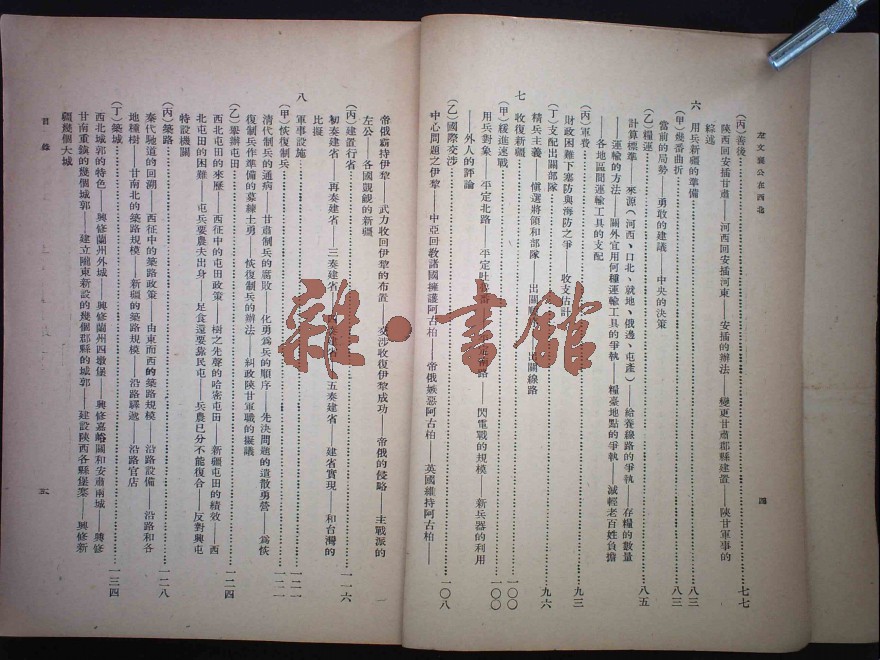 左文襄公在西北
四
(丙)善後……七七
陝西回安插甘肅——河西回安插河東——安插的辦法——變更甘肅郡縣建置——陝甘軍事的
綜述
六 用兵新疆的準備……八三
(甲)幾番曲折……八三
當前的局勢——勇敢的建議——中央的決策
(乙)糧運……八五
計算標準——來源(河西、口北、就地、俄邊、屯產)——給養線路的爭執——存糧的數量
——運輸的方法——關外宜用何種運輸工具的爭執——糧臺地點的爭執——減輕老百姓負擔
——各地區間運輸工具的支配
(丙)軍費……九三
財政困難下塞防與海防之爭——收支估計
(丁)支配出關部隊……九六
精兵主義——愼選將領和部隊——出關 出關線路
七 收復新疆……一〇〇
(甲)緩進速戰……一〇〇
用兵對象——平定北路——平定吐魯番 南路——閃電戰的規模——新兵器的利用
——外人的評論
(乙)國際交涉……一〇八
中心問題之伊犂——中亞回敎諸國擁護阿古柏——帝俄嫉惡阿古柏——英國維持阿古柏——
帝俄霸持伊犂——武力收回伊犂的布置——交涉收復伊犂成功——帝俄的侵略——主戰派的
左公——各國覬覦的新疆
(丙)建置行省……一一六
初奏建省——再奏建省——三奏建省——四奏建省——五奏建省——建省實現——和台灣的
比擬
八 軍事設施……一二一
(甲)恢復制兵……一二一
清代制兵的通病——甘肅制兵的腐敗——化勇爲兵的順序——先決問題的遣散勇營——爲恢
復制兵作準備的募練土勇——恢復制兵的辦法——糾政陝甘軍職的擬議
(乙)舉辦屯田……一二四
西北屯田的來歷——西征中的屯田政策——樹之先聲的哈密屯田——新疆屯田的績效——西
北屯田的困難——屯兵要農夫出身——足食還要靠民屯——兵農已分不能復合——反對興屯
特設機關
(丙)築路……一二八
秦代馳道的回溯——西征中的築路政策——由東而西的築路規模——沿路設備——沿路和各
地種樹——甘南北的築路規模——新疆的築路規模——沿路驛遞——沿路官店
(丁)築城……一三四
西北城郭的特色——興修蘭州外城——興修蘭州四墩堡——興修嘉峪關和安肅南城——興修
甘南重鎮的幾個城郭——建立隴東新設的幾個郡縣的城郭——建設陝西各縣堡寨——興修新
疆幾個大城
目錄
五
雜·書舘